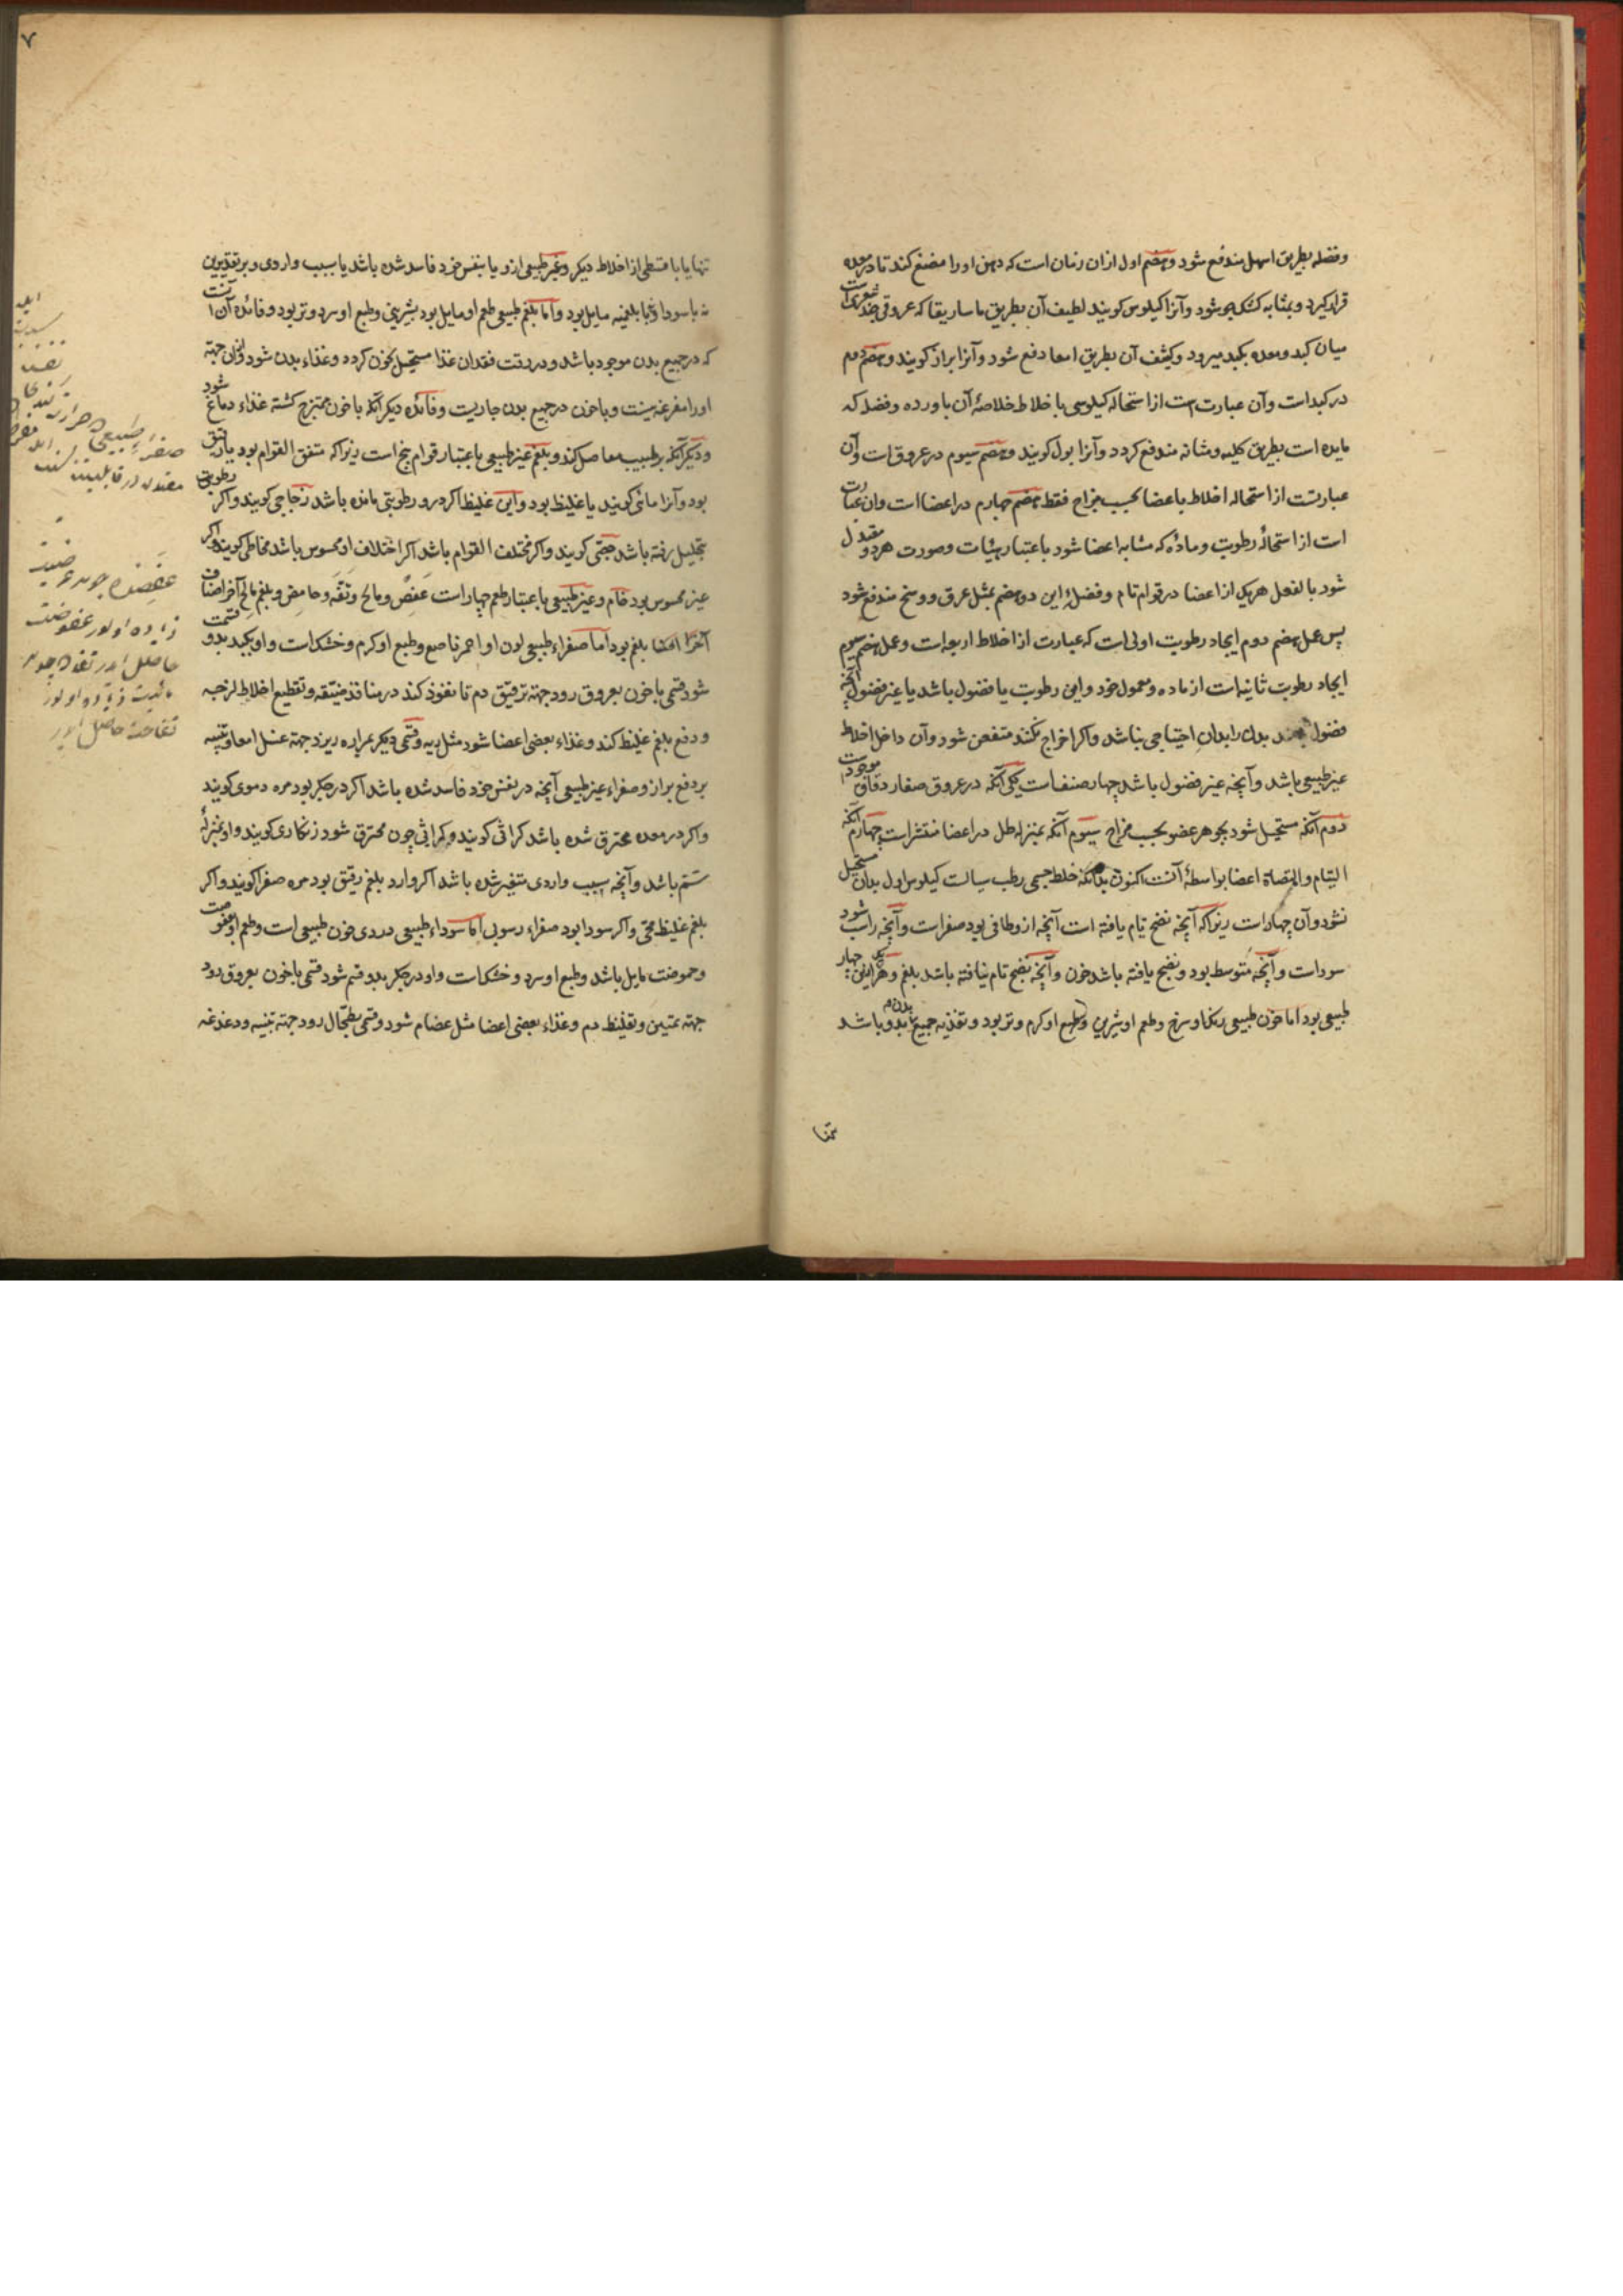 وفضله بطریق اسهل مندفع شود وهضم اول ازان زمان است که دهن اورا مضغ کند تا در معده
قرار کیرد وبمثابه کشک جو شود وآنرا کیلوس کویند لطیف آن بطریق ماساریقا که عروقی چند شعریست
میان کبد ومعده بکبد میرود وکثیف آن بطریق امعا دفع شود وآنرا براز کویند وهضم دوم
در کبد است وآن عبارت است از استحاله کیلوسی با خلاط خلاصهٔ آن باورده وفضله که
مایده است بطریق کلیه ومثانه مندفع کردد وآنرا بول کویند وهضم سیوم در عروق است وآن
عبارتست از استحاله اخلاط باعضا بحسب مزاج فقط هضم چهارم در اعضا است وان عبارت
است از استحالهٔ رطوبت ومادهٔ که مشابه اعضا شود باعتبار هیئات وصورت هردو مقبدل
شود بالفعل هریک از اعضا در قوام تام وفضلهٔ این دو هضم بمثل عرق ووسخ مندفع شود
پس عمل هضم دوم ایجاد رطوبت اولی است که عبارت از اخلاط اربعه است وعمل هضم سیوم
ایجاد رطوبت ثانیه است از ماده ومعمول خود واین رطوبت یا فضول باشد یا غیر فضول آنچه
فضول بدن را بدان احتیاجی نباشد واکر اخراج نکنند متعفن شود وآن داخل اخلاط
غیر طبیعی باشد وآنچه غیر فضول باشد چهار صنف است یکی آنکه در عروق صغار دقاق موجود است
دوم آنکه مستحیل شود بجوهر عضو بحسب مزاج سیوم آنکه بمنزله طل در اعضا منتشر است چهارم آنکه
التیام والتصاق اعضا بواسطهٔ آنست اکنون بدانکه خلط جسمی رطب سیالست کیلوس اول بدان مستحیل
نشود وآن چهار است زیرا که آنچه نضج تمام یافته است آنچه ازو طافی بود صفراست وآنچه راسب شود
سوداست وآنچه متوسط بود ونضج یافته باشد خون وآنچه نضج تام نیافته باشد بلغم وهر یکی ازین چهار
طبیعی بود اما خون طبیعی رنک او سرخ وطعم او شیرین وطبع او کرم وتر بود وتغذیه جمیع بدن بدو باشد
تنها
۷
تنها یا با قسطی از اخلاط دیکر وغیر طبیعی ازو یا بنفس خود فاسد شده باشد یا بسبب واردی وبر تقدیرین
یا بسودا ویا بلغمیه مایل بود واما بلغم طبیعی طعم او مایل بود بشیرینی وطبع او سرد وتر بود وفائده آن آنست
که در جمیع بدن موجود باشد ودر وقت فقدان غذا مستحیل بخون کردد وغذاء بدن شود وازان جهة
اورا مفرغه نیست وباخون در جمیع بدن جاریست وفائدهٔ دیکر آنکه باخون ممتزج کشته غذاء دماغ شود
ودیکر آنکه ترطیب مفاصل کند وبلغم غیر طبیعی باعتبار قوام پنج است زیرا که متفق القوام بود یا رقیق
بود وآنرا مائی کویند یا غلیظ بود واین غلیظ اکر درو رطوبتی مانده باشد زجاجی کویند واکر رطوبتی
بتحلیل رفته باشد جصّی کویند واکر مختلف القوام باشد اکر اختلاف او محسوس باشد مخاطی کویند واکر
غیر محسوس بود خام وغیر طبیعی باعتبار طعم چهار است عفِص ومالح وتفِه وحامض وبلغم مالح آخر اصناف
بلغم بود اما صفراء طبیعی لون او احمر ناصع وطبع او کرم وخشک است واو بکبد بدو قسمت
شود قسمی باخون بعروق رود جهة ترقیق دم تا نفوذ کند در منافذ ضیّقه وتقطیع اخلاط لزجه
ودفع بلغم غلیظ کند وغذاء بعضی اعضا شود مثل ریه وقسمی دیکر بمراره ریزد جهة غسل امعا وتنبیه
بر دفع براز وصفراء غیر طبیعی آنچه در نفس خود فاسد شده باشد اکر در جکر بود مره دموی کویند
واکر در معده محترق شده باشد کراثی کویند وکراثی چون محترق شود زنکاری کویند واو بمنزلهٔ
سَم باشد وآنچه بسبب واردی متغیر شده باشد اکر وارد بلغم رقیق بود مره صفرا کویند واکر
بلغم غلیظ محّی واکر سودا بود صفراء رسوبی اما سوداء طبیعی دردی خون طبیعی است وطعم او بعفوصت
وحموضت مایل باشد وطبع او سرد وخشک است واو در جکر بدو قسم شود قسمی باخون بعروق رود
جهة تمتین وتغلیظ دم وغذاء بعضی اعضا مثل عضام شود وقسمی بطحال رود جهة تنبیه ودغدغه
صفراء طبیعی
حاصل ایدر
زیاده اولور